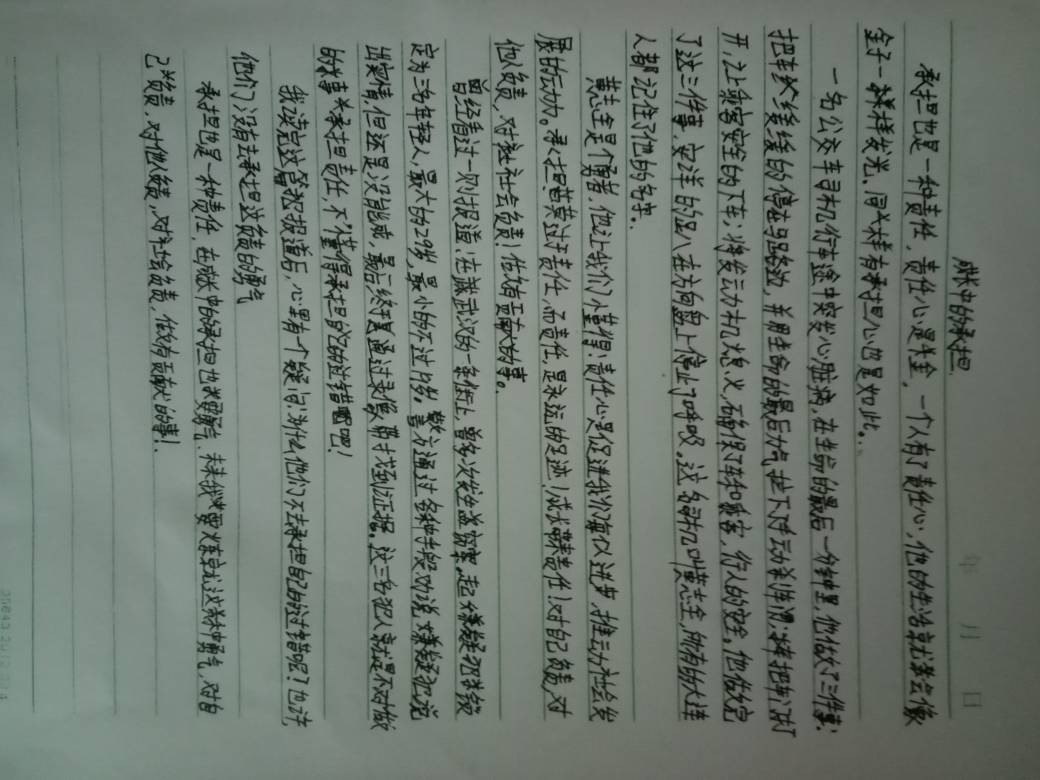 成长中的承担.
承担也是一种责任，责任心是半金，一个人有了责任心，他的生活就会像
金子一样发光、同样有承担心也是如此。
一名公交车司机行车途中突发心脏病，在生命的最后一分钟里，他做了三件事：
把车缓缓的停在马路边，并用生命的最后力气拉下了手动刹车闸；把车门打
开，让乘客安全的下车；将发动机熄火，确保了车和乘客，行人的安全。他做完
了这三件事，安详的趴在方向盘上停止了呼吸。这名司机叫黄志全，所有的大连
人都记住了他的名字。
黄志全是个勇者，他让我们懂得：责任心是促进我们得以进步，推动社会发
展的动力。承担莫过于责任，而责任，是永远的足迹！成长需责任！对自己负责，对
他人负责，对社会负责！做有贡献的事。
曾经看过一则报道：在武汉的一条街上，曾多次发生盗窃案。起嫌疑犯警锁
定为三名年轻人，最大的29岁，最小的不过18岁。警方通过各种手段劝说嫌疑犯说
出实情，但还是没有坦诚，最后终通过录像带找到证据。这三名犯人就是不对做
的事承担责任，不懂得承担自己的过错吧！
我读完这篇报道后，心里有个疑问：为什么他们不去承担自己的过错呢？也许
他们没有去承担这份责的勇气
承担也是一种责任，在成长中的承担也需要勇气、未来我要靠这种勇气，对自
己负责，对他人负责，对社会负责，做有贡献的事！.
年 月 日